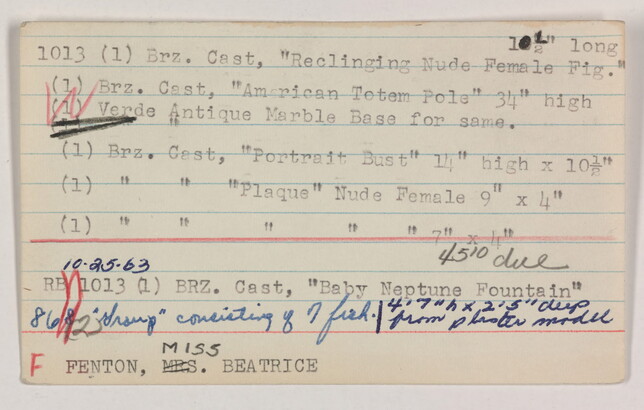 10½" long
1013 (1) Brz. Cast, "Reclinging Nude Female Fig."
(1) Brz. Cast, "American Totem Pole" 34" high
(1) Verde Antique Marble Base for same.
(1) Brz. Cast, "Portrait Bust" 14" high x 10½"
(1) " " "Plaque" Nude Female 9" x 4"
(1) " " " " " 7" x 4"
4510 due
10-25-63
RB 1013 (1) BRZ. Cast, "Baby Neptune Fountain"
868 "Group" consisting of 7 fish. 4'7"h x 2'5" deep
from plaster model
MISS
F FENTON, MRS. BEATRICE